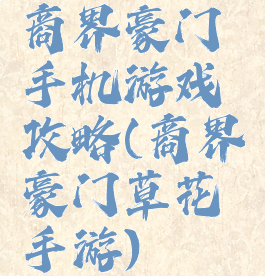 商界豪门
手机游戏
攻略(商界
豪门草花
手游)